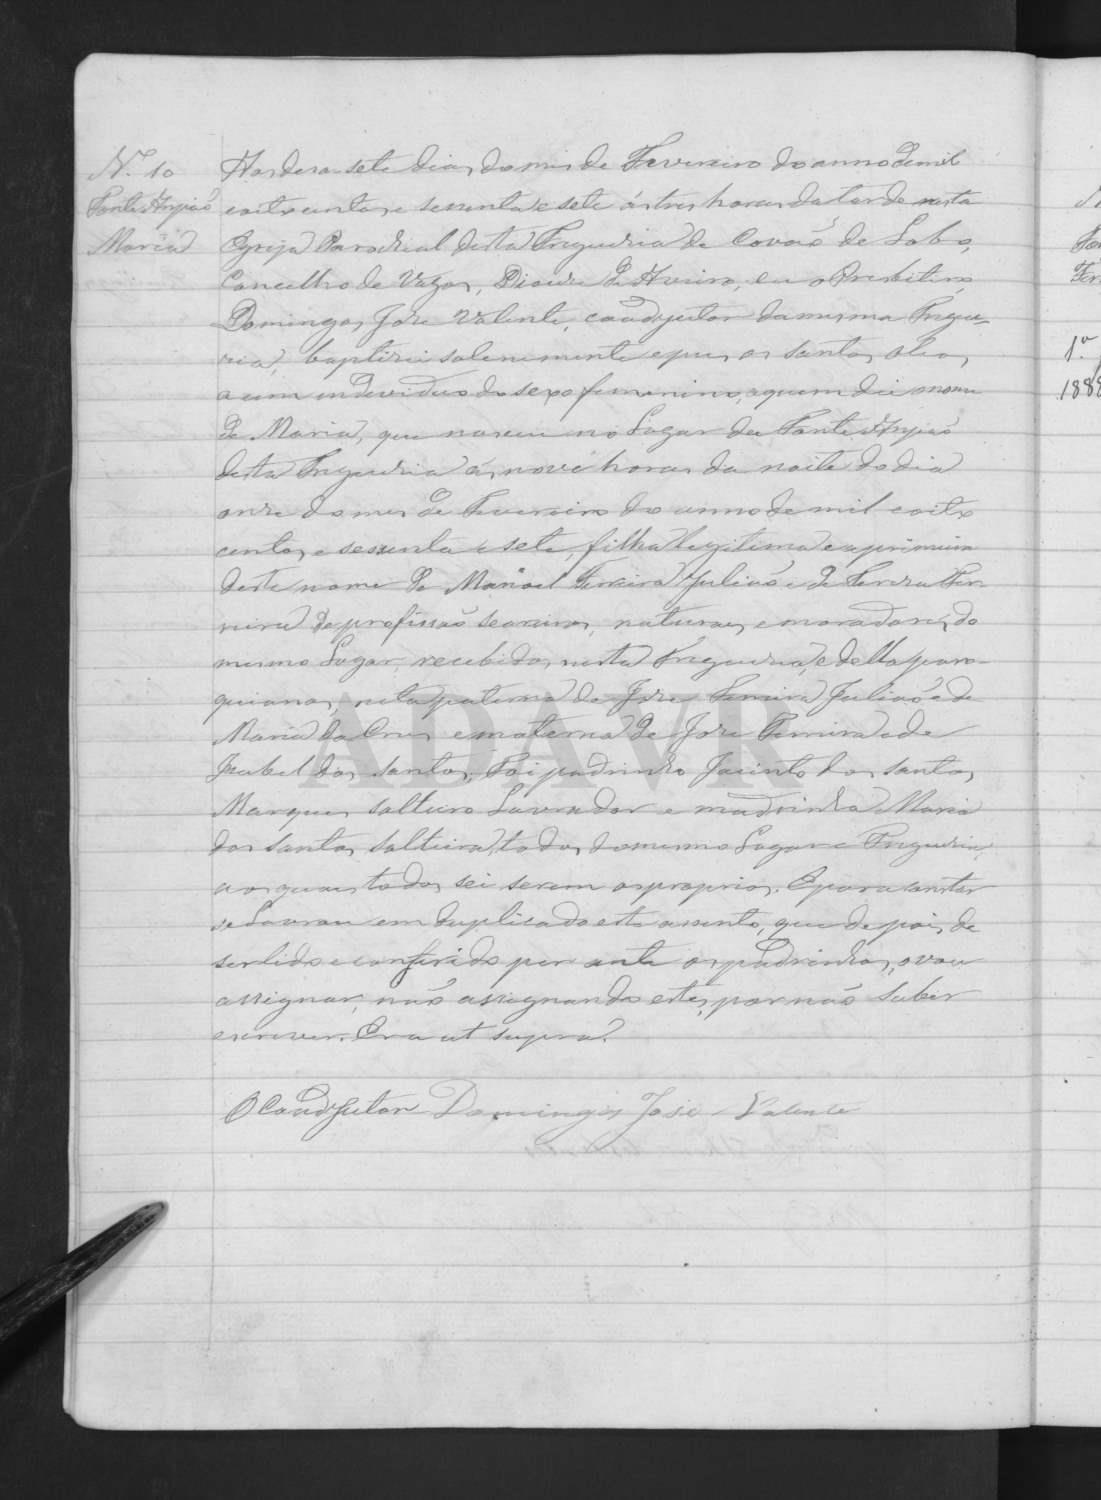 N.º 10
Fonte Angião
Maria
Aos deza-sete dias do mes de Fevereiro do anno de mil
oitocentos e sessenta e sete ás tres horas da tarde nesta
Egreja Parochial desta Freguezia de Covaõ de Lobo,
Concelho de Vagos, Diocese de Aveiro, eu o Presbitero
Domingos Joze Valente, coadjutor da mesma Fregue-
zia, baptizei solenemente e pus os santos oleos,
a um individuo do sexo femenino, a quem dei o nome
de Maria, que nasceu no Lugar da Fonte Angiaõ
desta Freguezia ás nove horas da noite do dia
onze do mes de Fevereiro do anno de mil e oito
centos e sessenta e sete, filha legitima e a primeira
deste nome de Manoel Ferreira Juliaõ e de Thereza Fer-
reira de profissaõ seareiros, naturaes e moradores, do
mesmo Lugar, recebidos nesta Freguezia, e della paro-
quianos, neta paterna de Joze Ferreira Juliaõ e de
Maria da Crus e materna de Joze Ferreira e de
Izabel dos Santos. Foi padrinho Jacinto dos Santos
Marques solteiro Lavrador e madrinha Maria
dos Santos, solteira, todos do mesmo Lugar e Freguezia,
aos quaes todos sei serem os proprios. E para constar
se lavrou em duplicado este assento, que depois de
ser lido e conferido perante os padrinhos, o vou
assignar, naõ assignando estes, por naõ saber
escrever. Era ut supra.
O Coadjutor Domingos José Valente
ADAVR
1.º
1888